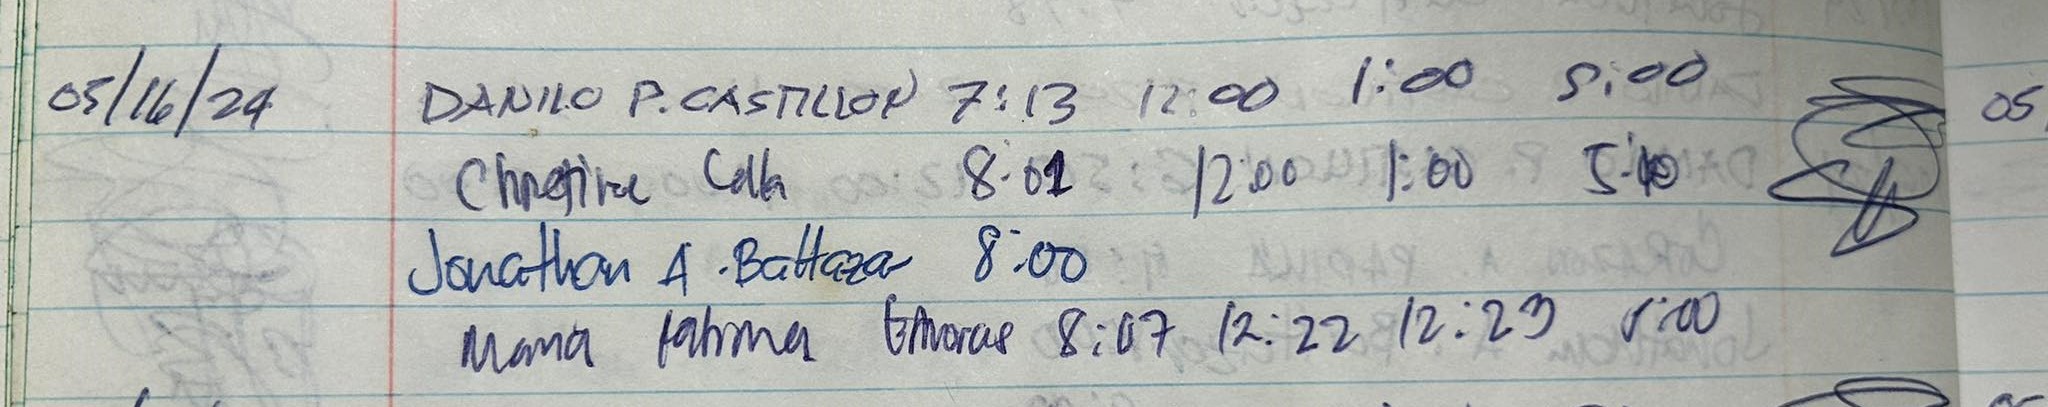 05/16/24 DANILO P. CASTILLON 7:13 12:00 1:00 5:00
Christine 8:01 12:00 1:00
Jonathan A. Baltazar 8:00
Maria Fatima 8:07 12:22 12:23 5:00
05